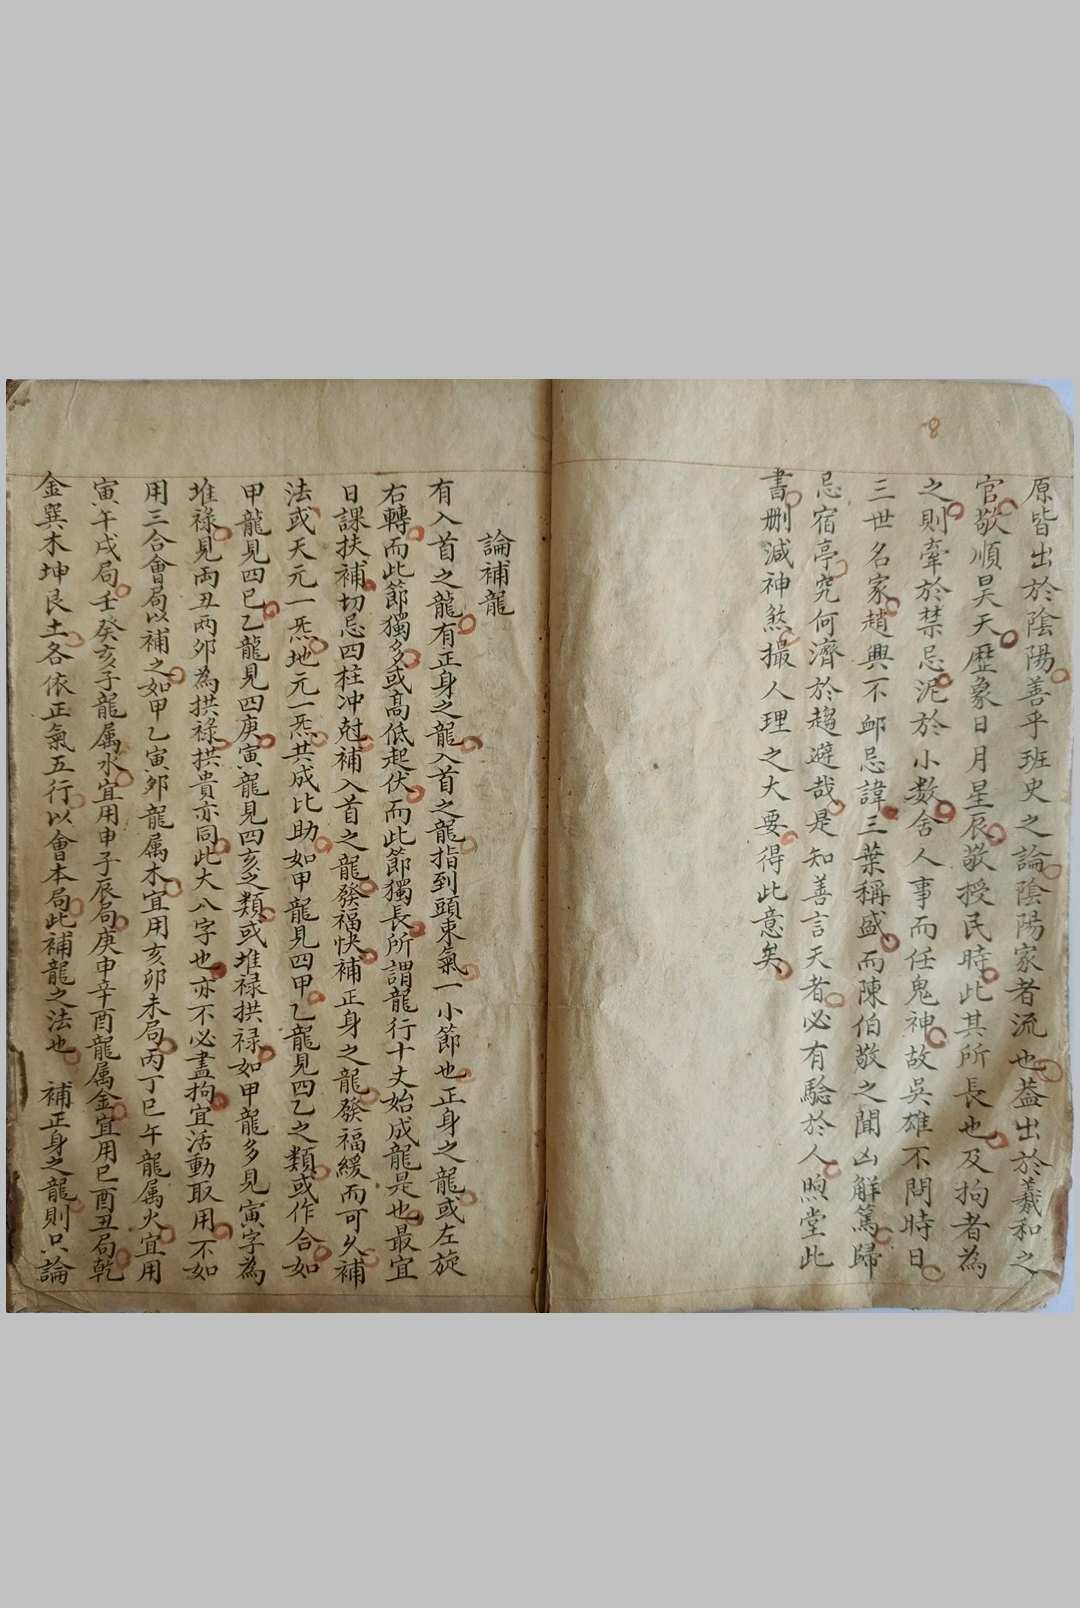 8
原皆出於陰陽善乎班史之論陰陽家者流也蓋出於羲和之
官敬順昊天歷象日月星辰敬授民時此其所長也及拘者為
之則牽於禁忌泥於小数舍人事而任鬼神故吳雄不問時日
三世名家趙興不邮忌諱三葉稱盛而陳伯敬之聞凶解駕歸
忌宿亭究何濟於趨避哉是知善言天者必有驗於人煦堂此
書刪減神煞撮人理之大要得此意矣
論補龍
有入首之龍有正身之龍入首之龍指到頭束氣一小節也正身之龍或左旋
右轉而此節獨多或高低起伏而此節獨長所謂龍行十丈始成龍是也最宜
日課扶補切忌四柱冲尅補入首之龍發福快補正身之龍發福緩而可久補
法或天元一炁地元一炁共成比助如甲龍見四甲乙龍見四乙之類或作合如
甲龍見四巳乙龍見四庚寅龍見四亥之類或堆禄拱禄如甲龍多見寅字為
堆祿見两丑两夘為拱祿拱貴亦同此大八字也亦不必盡拘宜活動取用不如
用三合會局以補之如甲乙寅夘龍属木宜用亥卯未局丙丁巳午龍属火宜用
寅午戌局壬癸亥子龍属水宜用申子辰局庚申辛酉龍属金宜用巳酉丑局乾
金巽木坤艮土各依正氣五行以會本局此補龍之法也　補正身之龍則只論